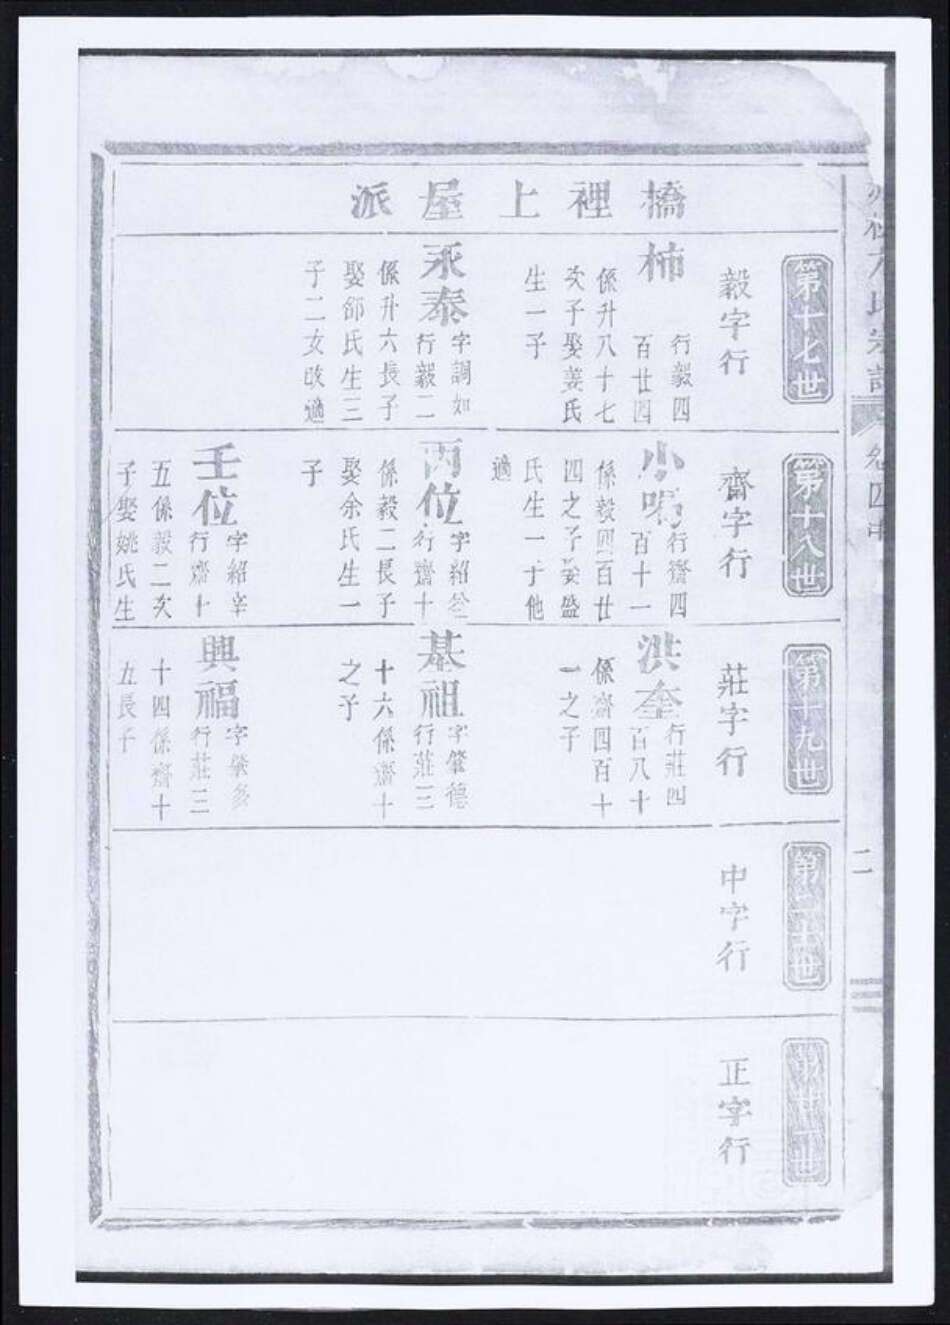 橋裡上屋派
第十七世
毅字行
柿
行毅四
百廿四
係升八十七
次子娶姜氏
生一子
永泰
字調如
行毅二
係升六長子
娶邵氏生三
子二女改適
第十八世
齋字行
小
行齋四
百十一
係毅四百廿
四之子娶盛
氏生一子他
適
丙位
字紹
行齋十
係毅二長子
娶余氏生一
子
壬位
字紹宰
行齋十
五係毅二次
子娶姚氏生
第十九世
莊字行
洪奎
行莊四
百八十
係齋四百十
一之子
基祖
字肇德
行莊三
十六係齋十
之子
興福
字肇
行莊三
十四係齋十
五長子
第二十世
中字行
第廿一世
正字行
方氏宗譜
卷四
二